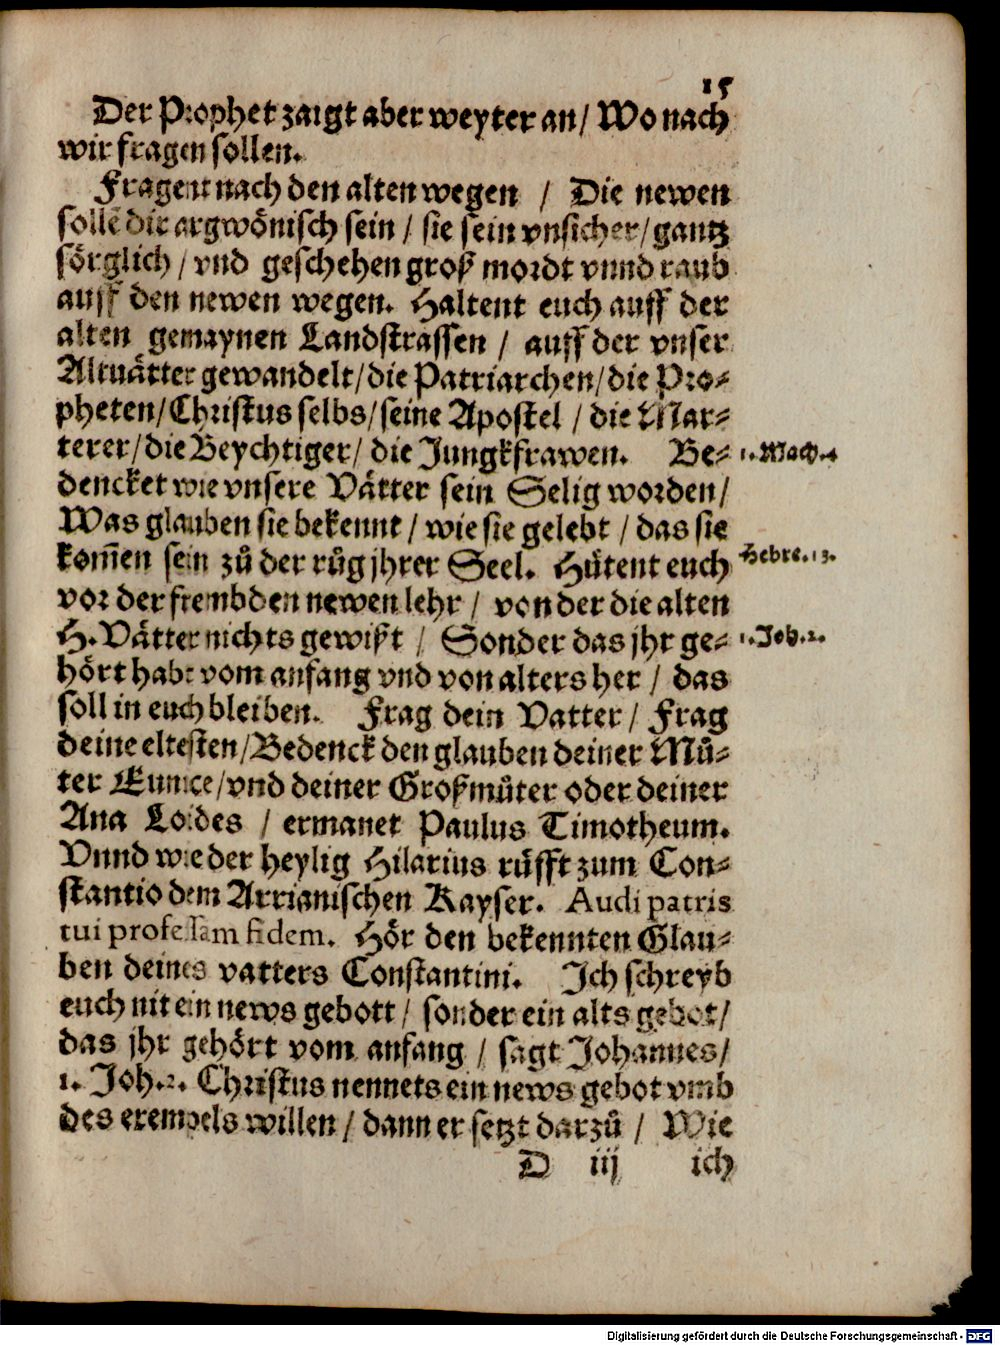 15
Der Prophet zaigt aber weyter an / Wo nach
wir fragen sollen.
Fragent nach den alten wegen / Die newen
sollē dir argwönisch sein / sie sein vnsicher / gantz
sörglich / vnd geschehen groß mordt vnnd raub
auff den newen wegen. Haltent euch auff der
alten gemaynen Landstrassen / auff der vnser
Altuätter gewandelt / die Patriarchen / die Pro-
pheten / Christus selbs / seine Apostel / die Mar-
terer / die Beychtiger / die Jungkfrawen. Be-
1. Mach. 4
dencket wie vnsere Vätter sein Selig worden /
Was glauben sie bekennt / wie sie gelebt / das sie
kom̄en sein zů der růg jhrer Seel. Hütent euch
Hebre. 13.
vor der frembden newen lehr / von der die alten
H. Vätter nichts gewißt / Sonder das jhr ge-
1. Joh. 2.
hört habt vom anfang vnd von alters her / das
soll in euch bleiben. Frag dein Vatter / Frag
deine eltesten / Bedenck den glauben deiner Mů-
ter Eunice / vnd deiner Großmůter oder deiner
Ana Loides / ermanet Paulus Timotheum.
Vnnd wie der heylig Hilarius růfft zum Con-
stantio dem Arrianischen Kayser. Audi patris
tui professam fidem. Hör den bekennten Glau-
ben deines vatters Constantini. Jch schreyb
euch nit ein news gebott / sonder ein alts gebot /
das jhr gehört vom anfang / sagt Johannes /
1. Joh. 2. Christus nennets ein news gebot vmb
des exempels willen / dann er setzt darzů / Wie
D iij ich
Digitalisierung gefördert durch die Deutsche Forschungsgemeinschaft - DFG